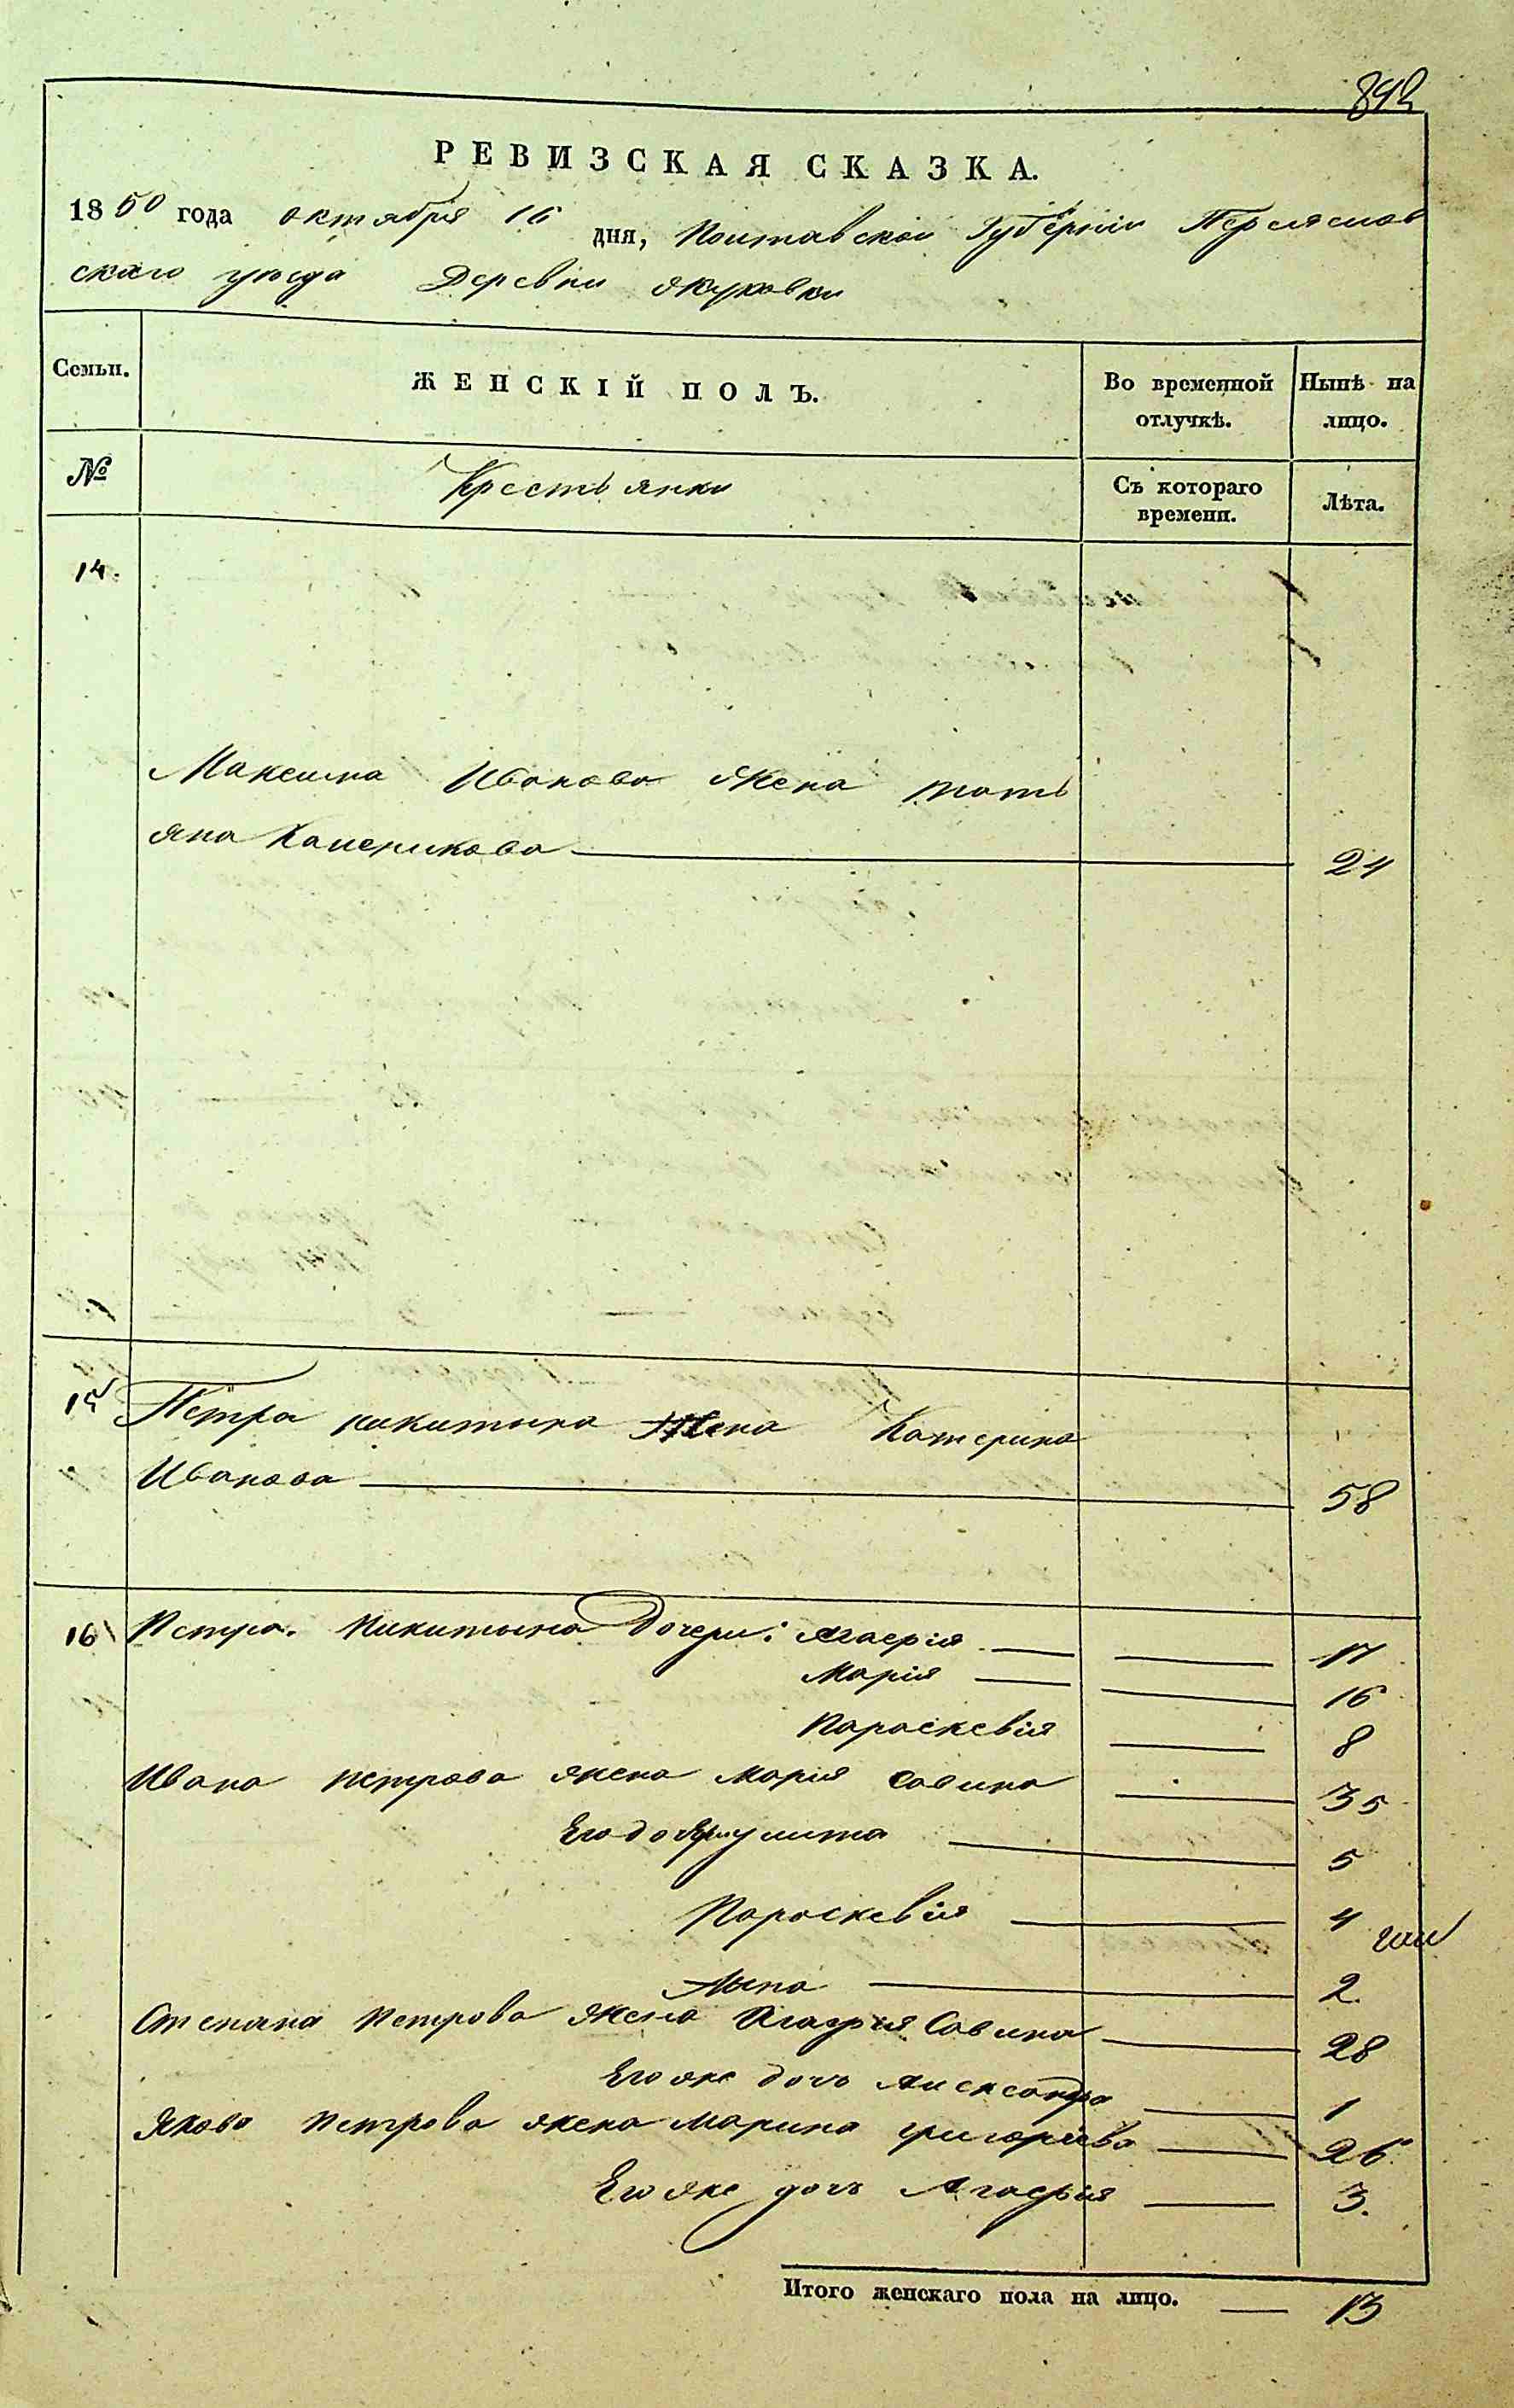 842
РЕВИЗСКАЯ СКАЗКА.
1850 года октября 16 дня, Полтавской Губерніи Переяслав
скаго уезда Деревни Якуровки
Семьи. ЖЕНСКІЙ ПОЛЪ. Во временной отлучкѣ. Нынѣ на лицо.
№ Крестьянки Съ котораго времени. Лѣта.
14.
Максима Иванова Жена Тать
яна 24
15 Петра Никитина Жена Катерина
Иванова 58
16 Петра Никитина Дочери: Агафія 17
Марія 16
Параскевія 8
Ивана Петрова жена Марія Савина 35
Его дочери улита 5
Параскевія 4
Анна 2
Степана Петрова жена Агафія Савина 28
Его же дочь Александра 1
Якова Петрова жена Марина григорьева 26
Его же дочь Агафія 3.
Итого женскаго пола на лицо. 13